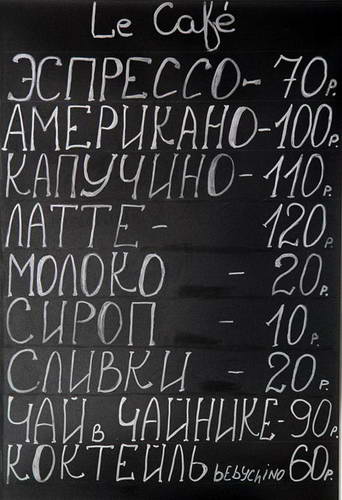 Le Café
ЭСПРЕССО - 70р.
АМЕРИКАНО - 100р.
КАПУЧИНО - 110р.
ЛАТТЕ - 120р.
МОЛОКО - 20р.
СИРОП - 10р.
СЛИВКИ - 20р.
ЧАЙ в ЧАЙНИКЕ - 90р.
КОКТЕЙЛЬ bEbYChiNO 60р.